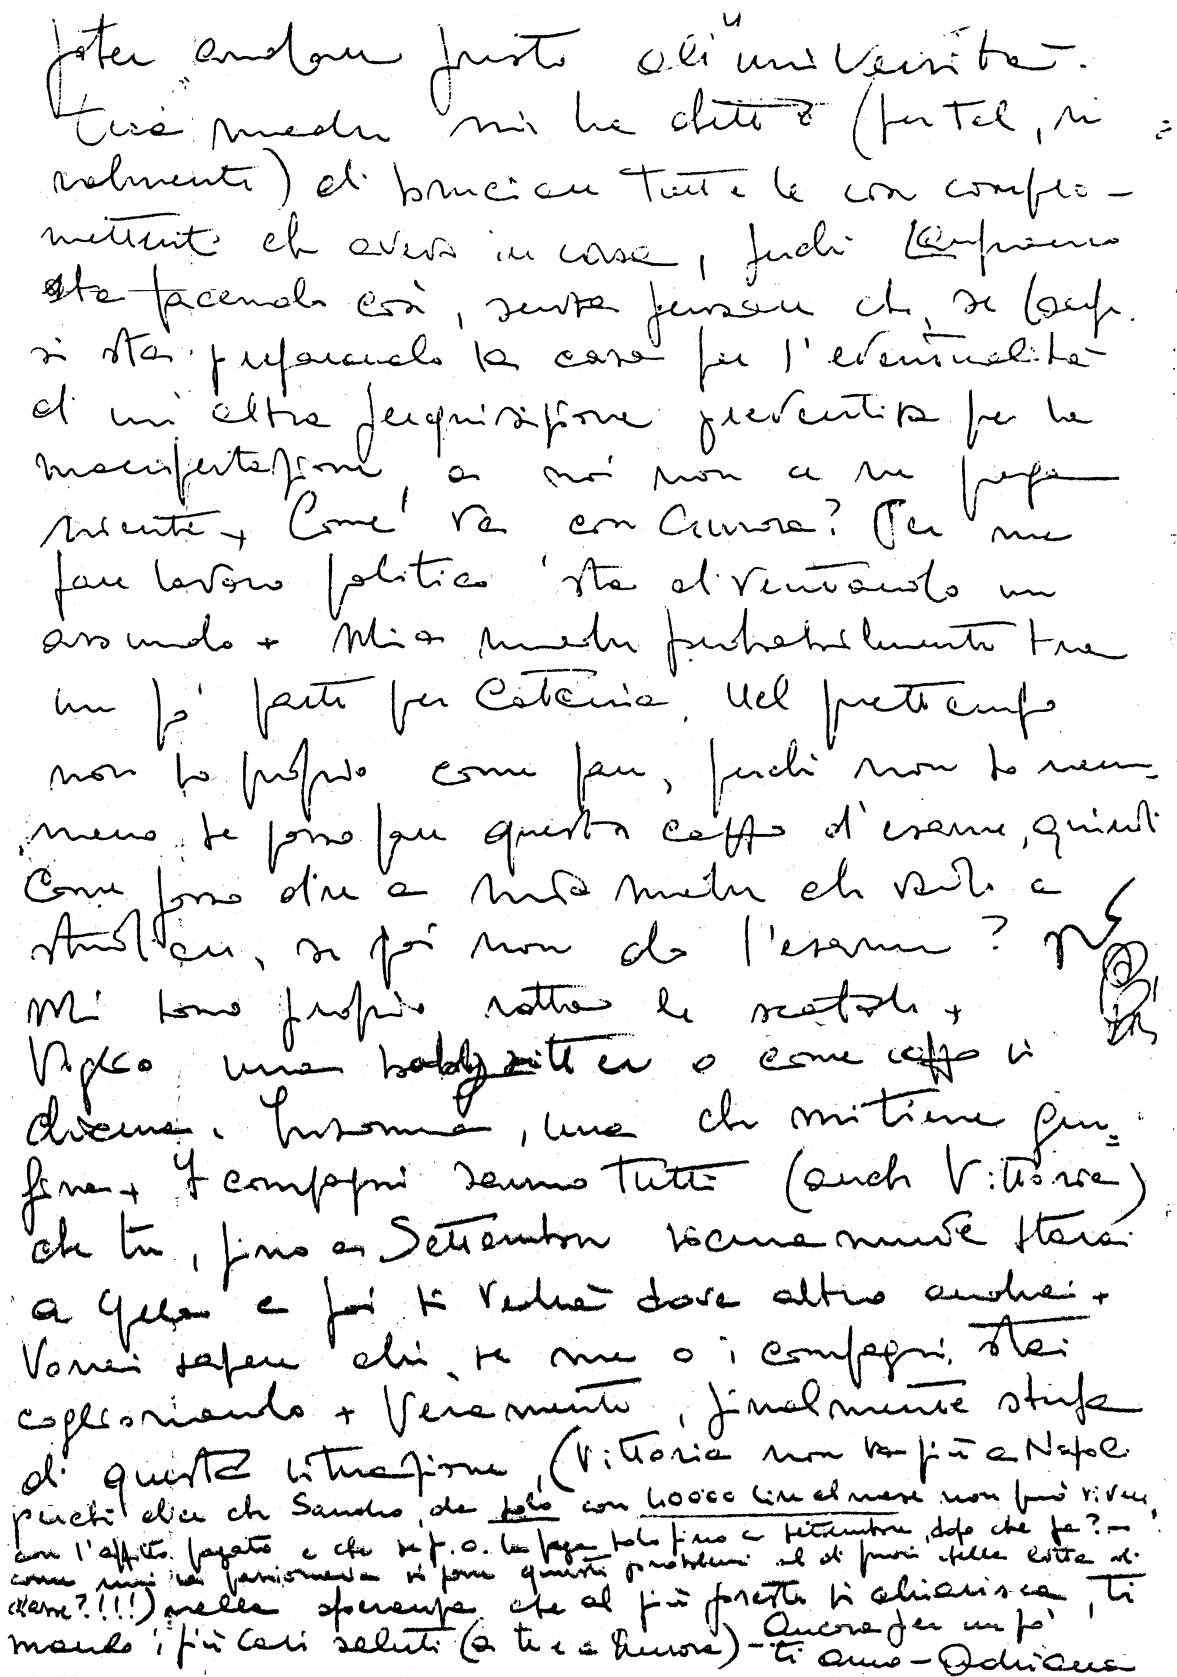 poter andare presto all'università.
tua madre mi ha detto (per tel, ri=
nalmente) di bruciare tutte le cose compro-
mettenti che avevo in casa, perché Lanfranco
sta facendo così, senza pensare che, se Lanfr.
si sta preparando la casa per l'eventualità
di un'altra perquisizione preventiva per la
manifestazione, a noi non ce ne frega
niente + Come va con Aurora? Per me
fare lavoro politico sta diventando un
assurdo + Mia madre probabilmente tra
un pò parte per Catania. Nel frattempo
non so proprio come fare, perché non so nem-
meno se posso fare questo cazzo d'esame, quindi
Come posso dire a mia madre che vado a
studiare, se poi non do l'esame?
Mi sono proprio rotta le scatole +
Voglio una babysitter o come cazzo si
chiama. Insomma, una che mi tiene Giu=
sina + I compagni sanno tutti (anche Vittoria)
che tu, fino a Settembre sicuramente starai
a Gela e poi si vedrà dove altro andrai +
Vorrei sapere chi, se me o i compagni, stai
coglionando + Veramente, finalmente stufa
di questa situazione, (Vittoria non va più a Napoli
perché dice che Sandro, da solo con 40000 lire al mese non può vivere,
con l'affitto pagato e che se p.o. la paga solo fino a settembre, dopo che fa? -
come mai si pone questi problemi al di fuori della lotta di
classe?!!!) nella speranza che al più presto si chiarisca, ti
mando i più cari saluti (a te e a Aurora) - Ancora per un pò
ti amo - Adriana